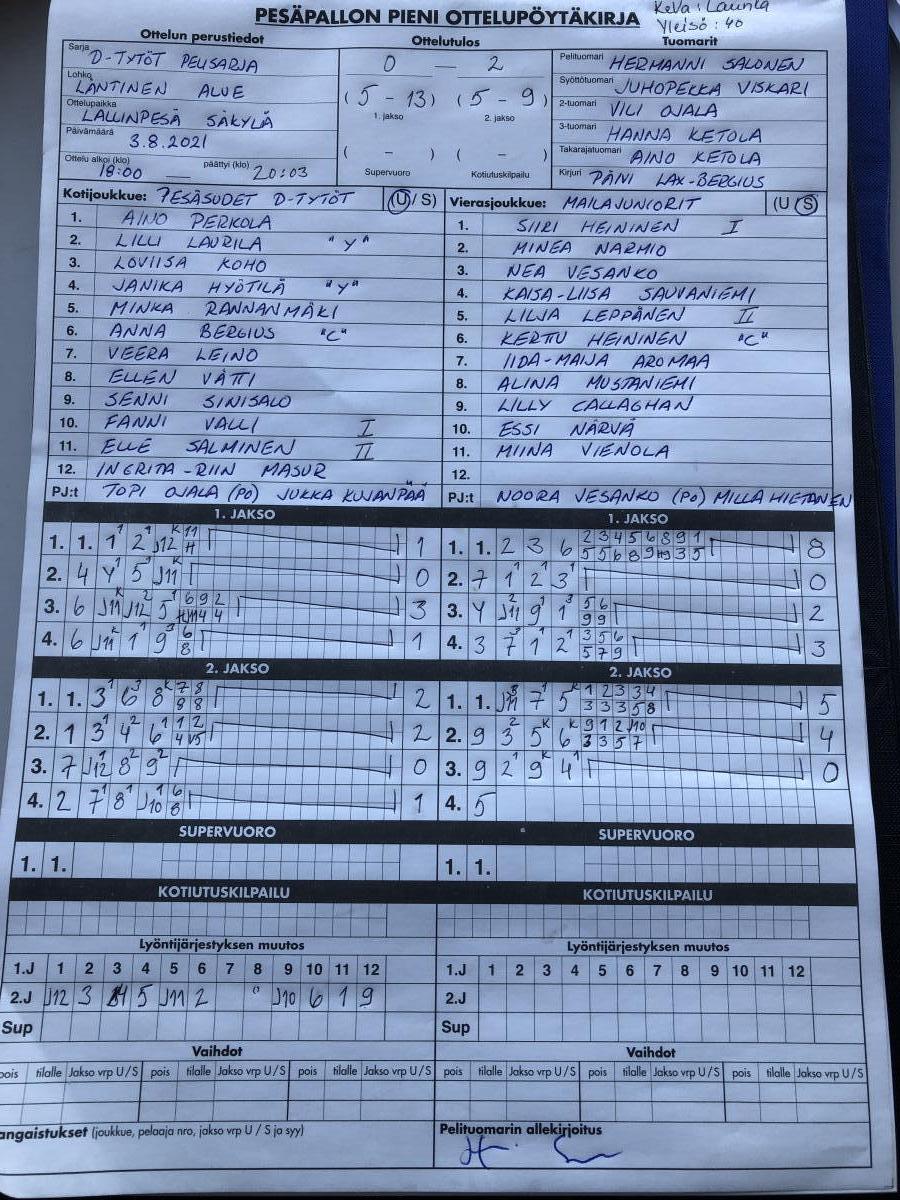 KeVa: Launla
PESÄPALLON PIENI OTTELUPÖYTÄKIRJA
Yleisö: 40
Ottelun perustiedot
Ottelutulos
Tuomarit
Sarja D-TYTÖT PELISARJA
0 — 2
Pelituomari HERMANNI SALONEN
Lohko LÄNTINEN ALUE
(5 - 13) (5 - 9)
Syöttötuomari JUHOPEKKA VISKARI
Ottelupaikka LALLINPESÄ SÄKYLÄ
1. jakso 2. jakso
2-tuomari VILI OJALA
Päivämäärä 3.8.2021
3-tuomari HANNA KETOLA
( - ) ( - )
Takarajatuomari AINO KETOLA
Ottelu alkoi (klo) 18:00 päättyi (klo) 20:03
Supervuoro Kotiutuskilpailu
Kirjuri PÄNI LAX-BERGIUS
Kotijoukkue: PESÄSUDET D-TYTÖT (U / S)
Vierasjoukkue: MAILAJUNIORIT (U / S)
1. AINO PERKOLA
1. SIIRI HEININEN I
2. LILLI LAURILA "Y"
2. MINEA NARMIO
3. LOVIISA KOHO
3. NEA VESANKO
4. JANIKA HYÖTILÄ "Y"
4. KAISA-LIISA SAUVANIEMI
5. MINKA RANNANMÄKI
5. LILJA LEPPÄNEN II
6. ANNA BERGIUS "C"
6. KERTTU HEININEN "C"
7. VEERA LEINO
7. IIDA-MAIJA AROMAA
8. ELLEN VÄTTI
8. ALINA MUSTANIEMI
9. SENNI SINISALO
9. LILLY CALLAGHAN
10. FANNI VALLI I
10. ESSI NÄRVÄ
11. ELLE SALMINEN II
11. MIINA VIENOLA
12. INGRITA-RIIN MASUR
12.
PJ:t TOPI OJALA (PO) JUKKA KUJANPÄÄ
PJ:t NOORA VESANKO (PO) MILLA HIETANEN
1. JAKSO
1. JAKSO
1. 1. 1 2 J12 1
1. 1. 2 3 6 8
2. 4 Y 5 J11 0
2. 7 1 2 3 0
3. 6 J11 J12 5 3
3. Y J11 9 1 2
4. 6 J11 1 9 1
4. 3 7 1 2 3
2. JAKSO
2. JAKSO
1. 1. 3 6 8 2
1. 1. J11 7 5 5
2. 1 3 4 6 2
2. 9 3 5 6 4
3. 7 J12 8 9 0
3. 9 2 9 4 0
4. 2 7 8 J10 1
4. 5
SUPERVUORO
SUPERVUORO
1. 1.
1. 1.
KOTIUTUSKILPAILU
KOTIUTUSKILPAILU
Lyöntijärjestyksen muutos
Lyöntijärjestyksen muutos
1.J 1 2 3 4 5 6 7 8 9 10 11 12
1.J 1 2 3 4 5 6 7 8 9 10 11 12
2.J J12 3 5 J11 2 J10 6 1 9
2.J
Sup
Sup
Vaihdot
Vaihdot
pois tilalle Jakso vrp U / S pois tilalle Jakso vrp U / S pois tilalle Jakso vrp U / S
pois tilalle Jakso vrp U / S pois tilalle Jakso vrp U / S pois tilalle Jakso vrp U / S
angaistukset (joukkue, pelaaja nro, jakso vrp U / S ja syy)
Pelituomarin allekirjoitus